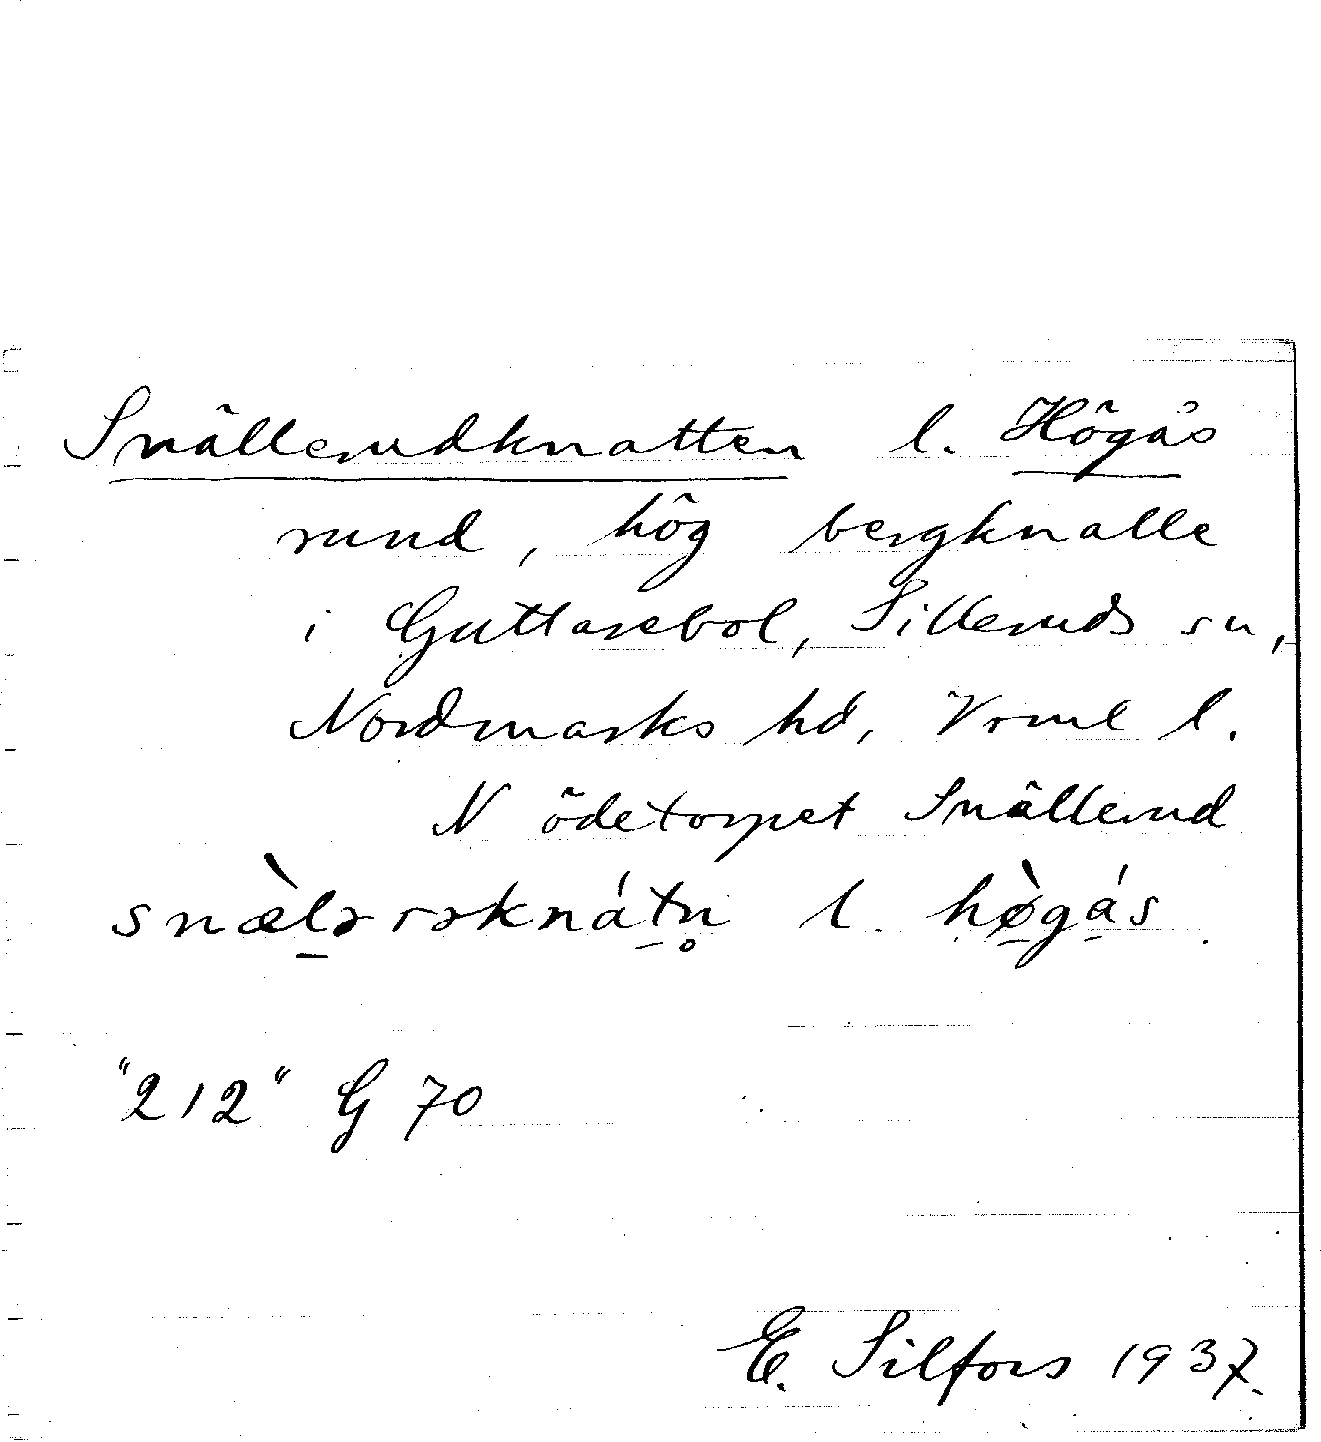 Snällerudknatten l. Högås
rund, hög bergknalle
i Guttarebol, Silleruds sn,
Nordmarks hd, Vrml l.
N ödetorpet Snällerud
snæ̀lərrəknátn̥ l. hø̀gás
"212" G 70
E. Silfors 1937.